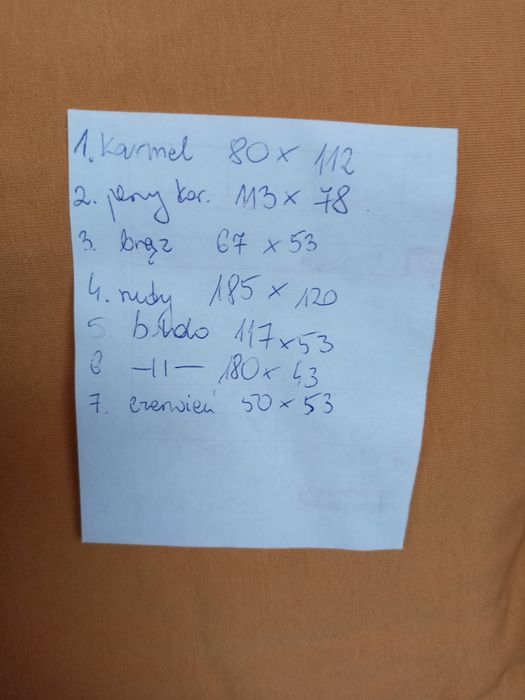 1. Karmel 80 x 112
2. jasny kar. 113 x 78
3. brąz 67 x 53
4. rudy 185 x 120
5. bordo 117 x 53
6 —||— 180 x 43
7. czerwień 50 x 53